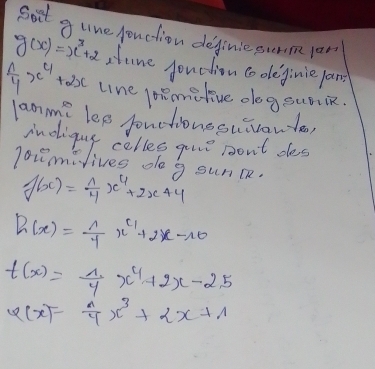 Soit g une fonction définie sur IR par
g(x) = x³+2 d'une fonction G définie par
1/4 x⁴ + 2x une primitive de g sur IR.
parmi les fonctions suivantes,
indique celles qui sont des
primitives de g sur IR.
f(x) = 1/4 x⁴ + 2x + 4
h(x) = 1/4 x⁴ + 2x - 10
t(x) = 1/4 x⁴ + 2x - 25
(x) = 1/4 x³ + 2x + 1